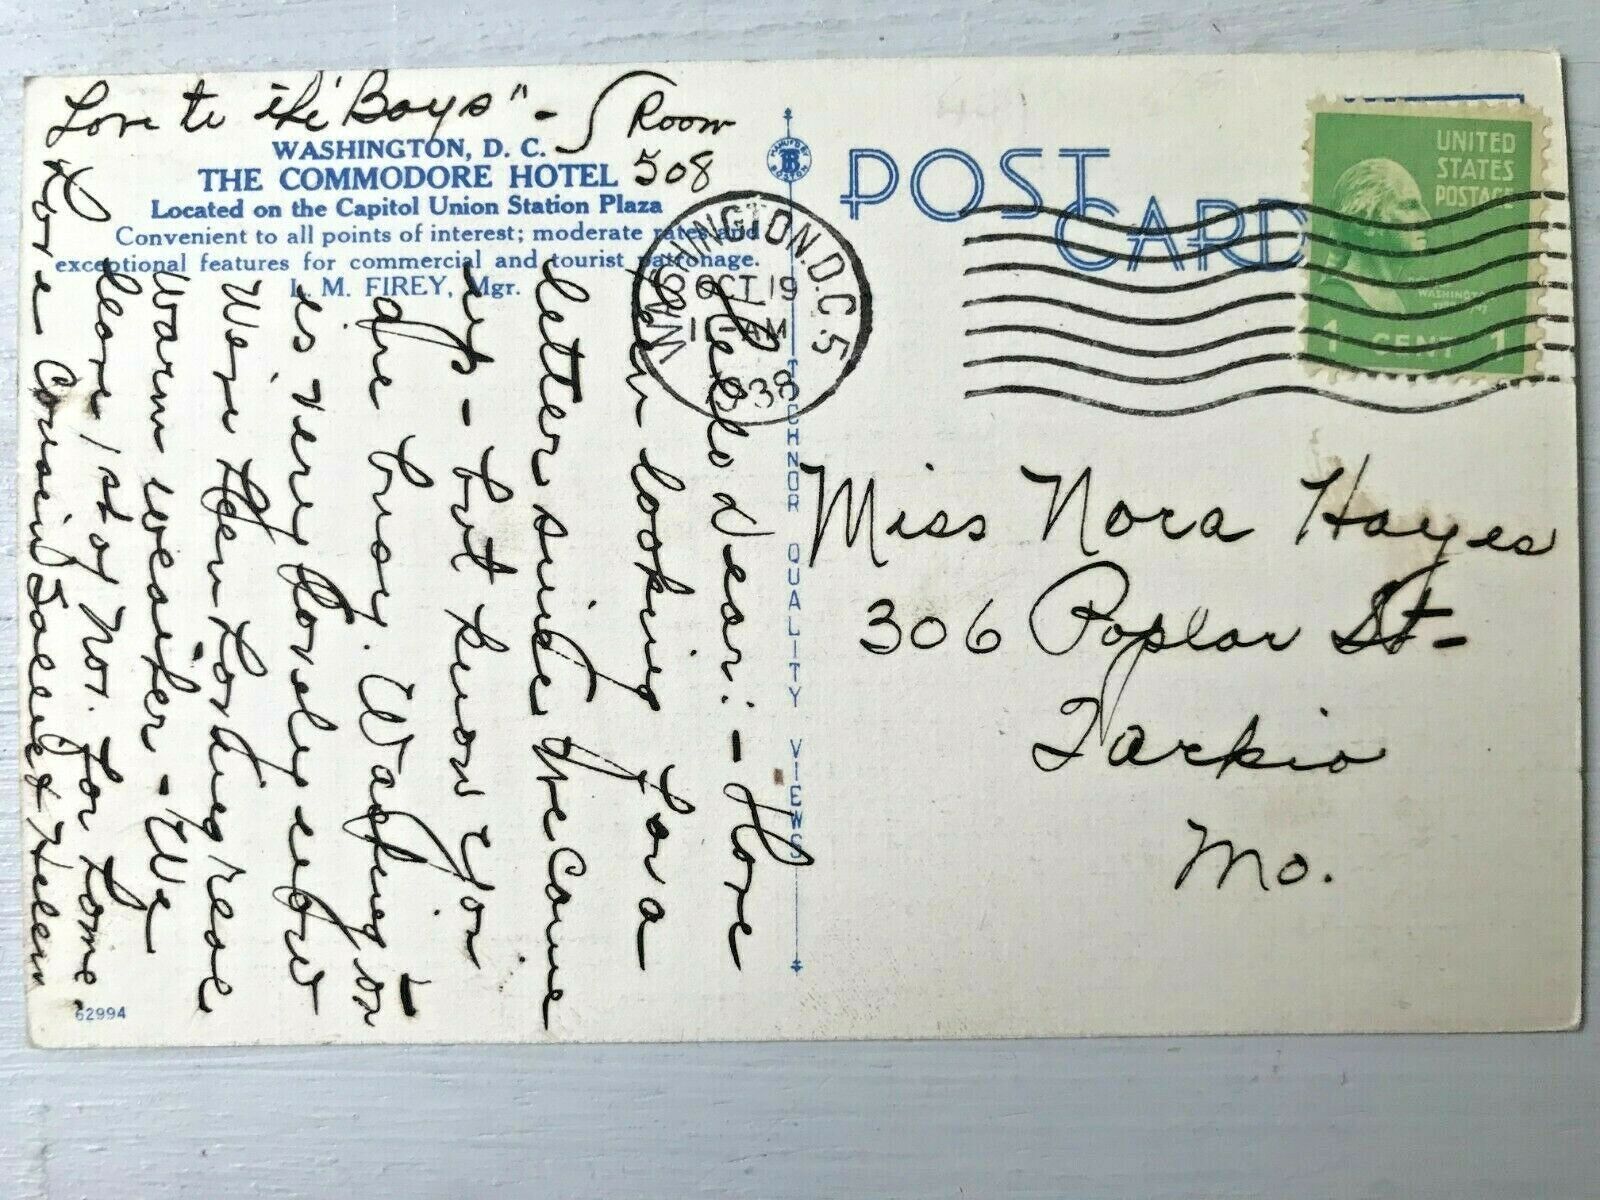 Love to "the Boys" -
Room
508
WASHINGTON, D. C.
THE COMMODORE HOTEL
Located on the Capitol Union Station Plaza
Convenient to all points of interest; moderate rates and
exceptional features for commercial and tourist patronage.
L. M. FIREY, Mgr.
Hello Dear: - Have
been looking for a
letter since we came
up - but know you
are busy. Washington
is very lovely now
We're been having real
warm weather - We
leave 1st of Nov. for home.
Love Cousin & Helen
62994
MANUF'D BY
TB
BOSTON
TICHNOR QUALITY VIEWS
POST CARD
WASHINGTON, D.C. 5
OCT 19
AM
1938
UNITED
STATES
POSTAGE
WASHINGTON
1 CENT 1
Miss Nora Hayes
306 Poplar St-
Tarkio
Mo.